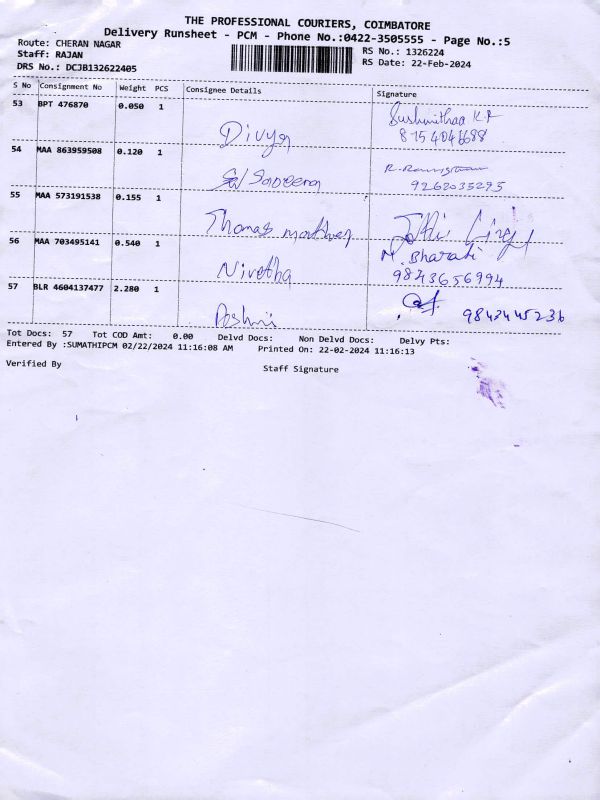 THE PROFESSIONAL COURIERS, COIMBATORE
Delivery Runsheet - PCM - Phone No.:0422-3505555 - Page No.:5
Route: CHERAN NAGAR
Staff: RAJAN
DRS No.: DCJB132622405
RS No.: 1326224
RS Date: 22-Feb-2024
S No Consignment No Weight PCS Consignee Details Signature
53 BPT 476870 0.050 1 Divya Sushmithaa K.R
8754041688
54 MAA 863959508 0.120 1
9262035295
55 MAA 573191538 0.155 1 Thomas mathwen
56 MAA 703495141 0.540 1 Nivetha M. Bharati
9843656994
57 BLR 4604137477 2.280 1 9843445236
Tot Docs: 57 Tot COD Amt: 0.00 Delvd Docs: Non Delvd Docs: Delvy Pts:
Entered By :SUMATHIPCM 02/22/2024 11:16:08 AM Printed On: 22-02-2024 11:16:13
Verified By Staff Signature